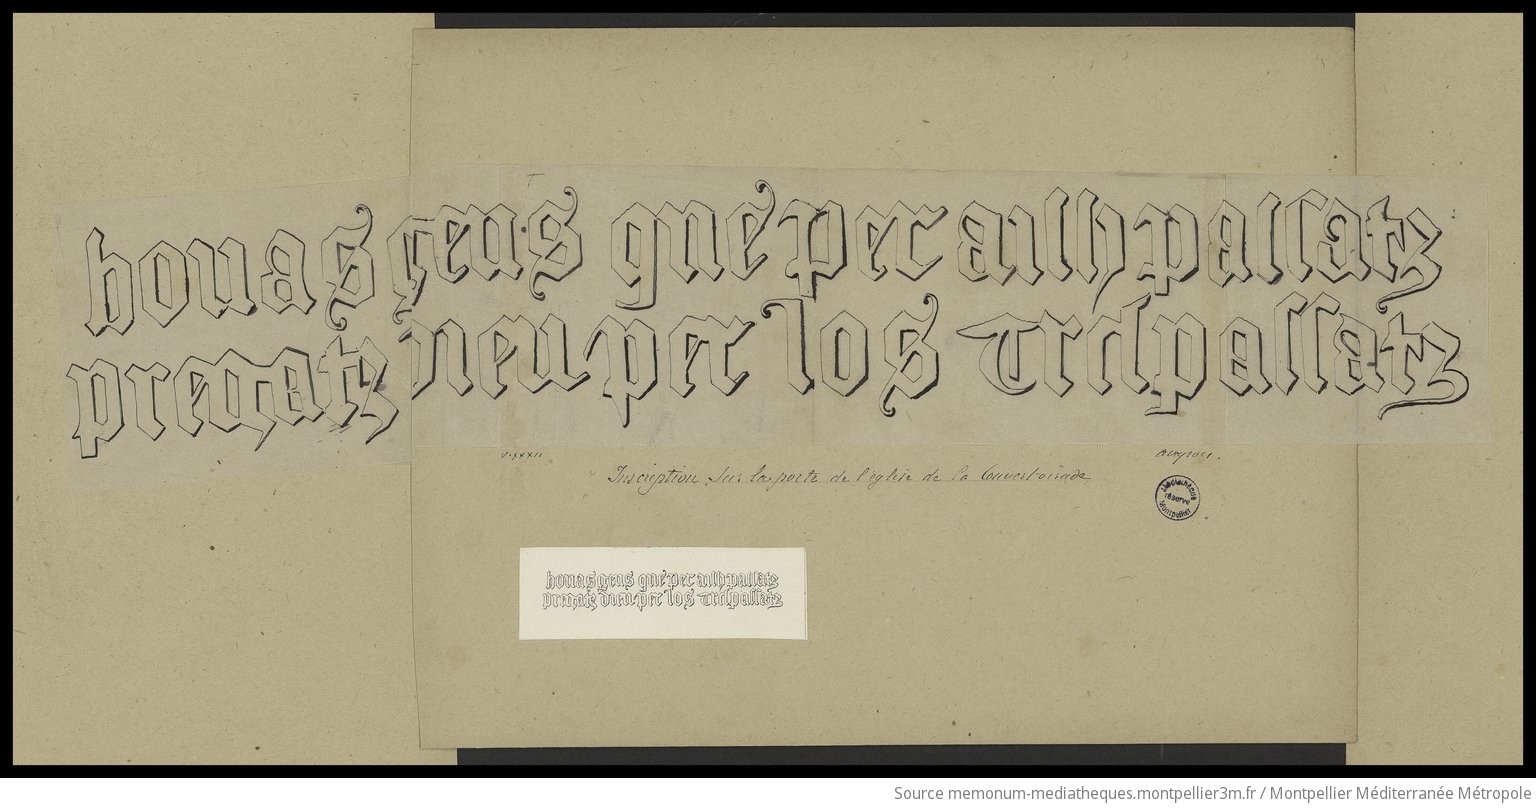 bonas gens que per aihpassatz
pregatz dieu per los trespassatz
v.xxxii
aveyron.
Inscription sur la porte de l'église de la Couvertoirade
Médiathèque
réserve
Montpellier
bonas gens que per aihpassatz
pregatz dieu per los trespassatz
Source memonum-mediatheques.montpellier3m.fr / Montpellier Méditerranée Métropole